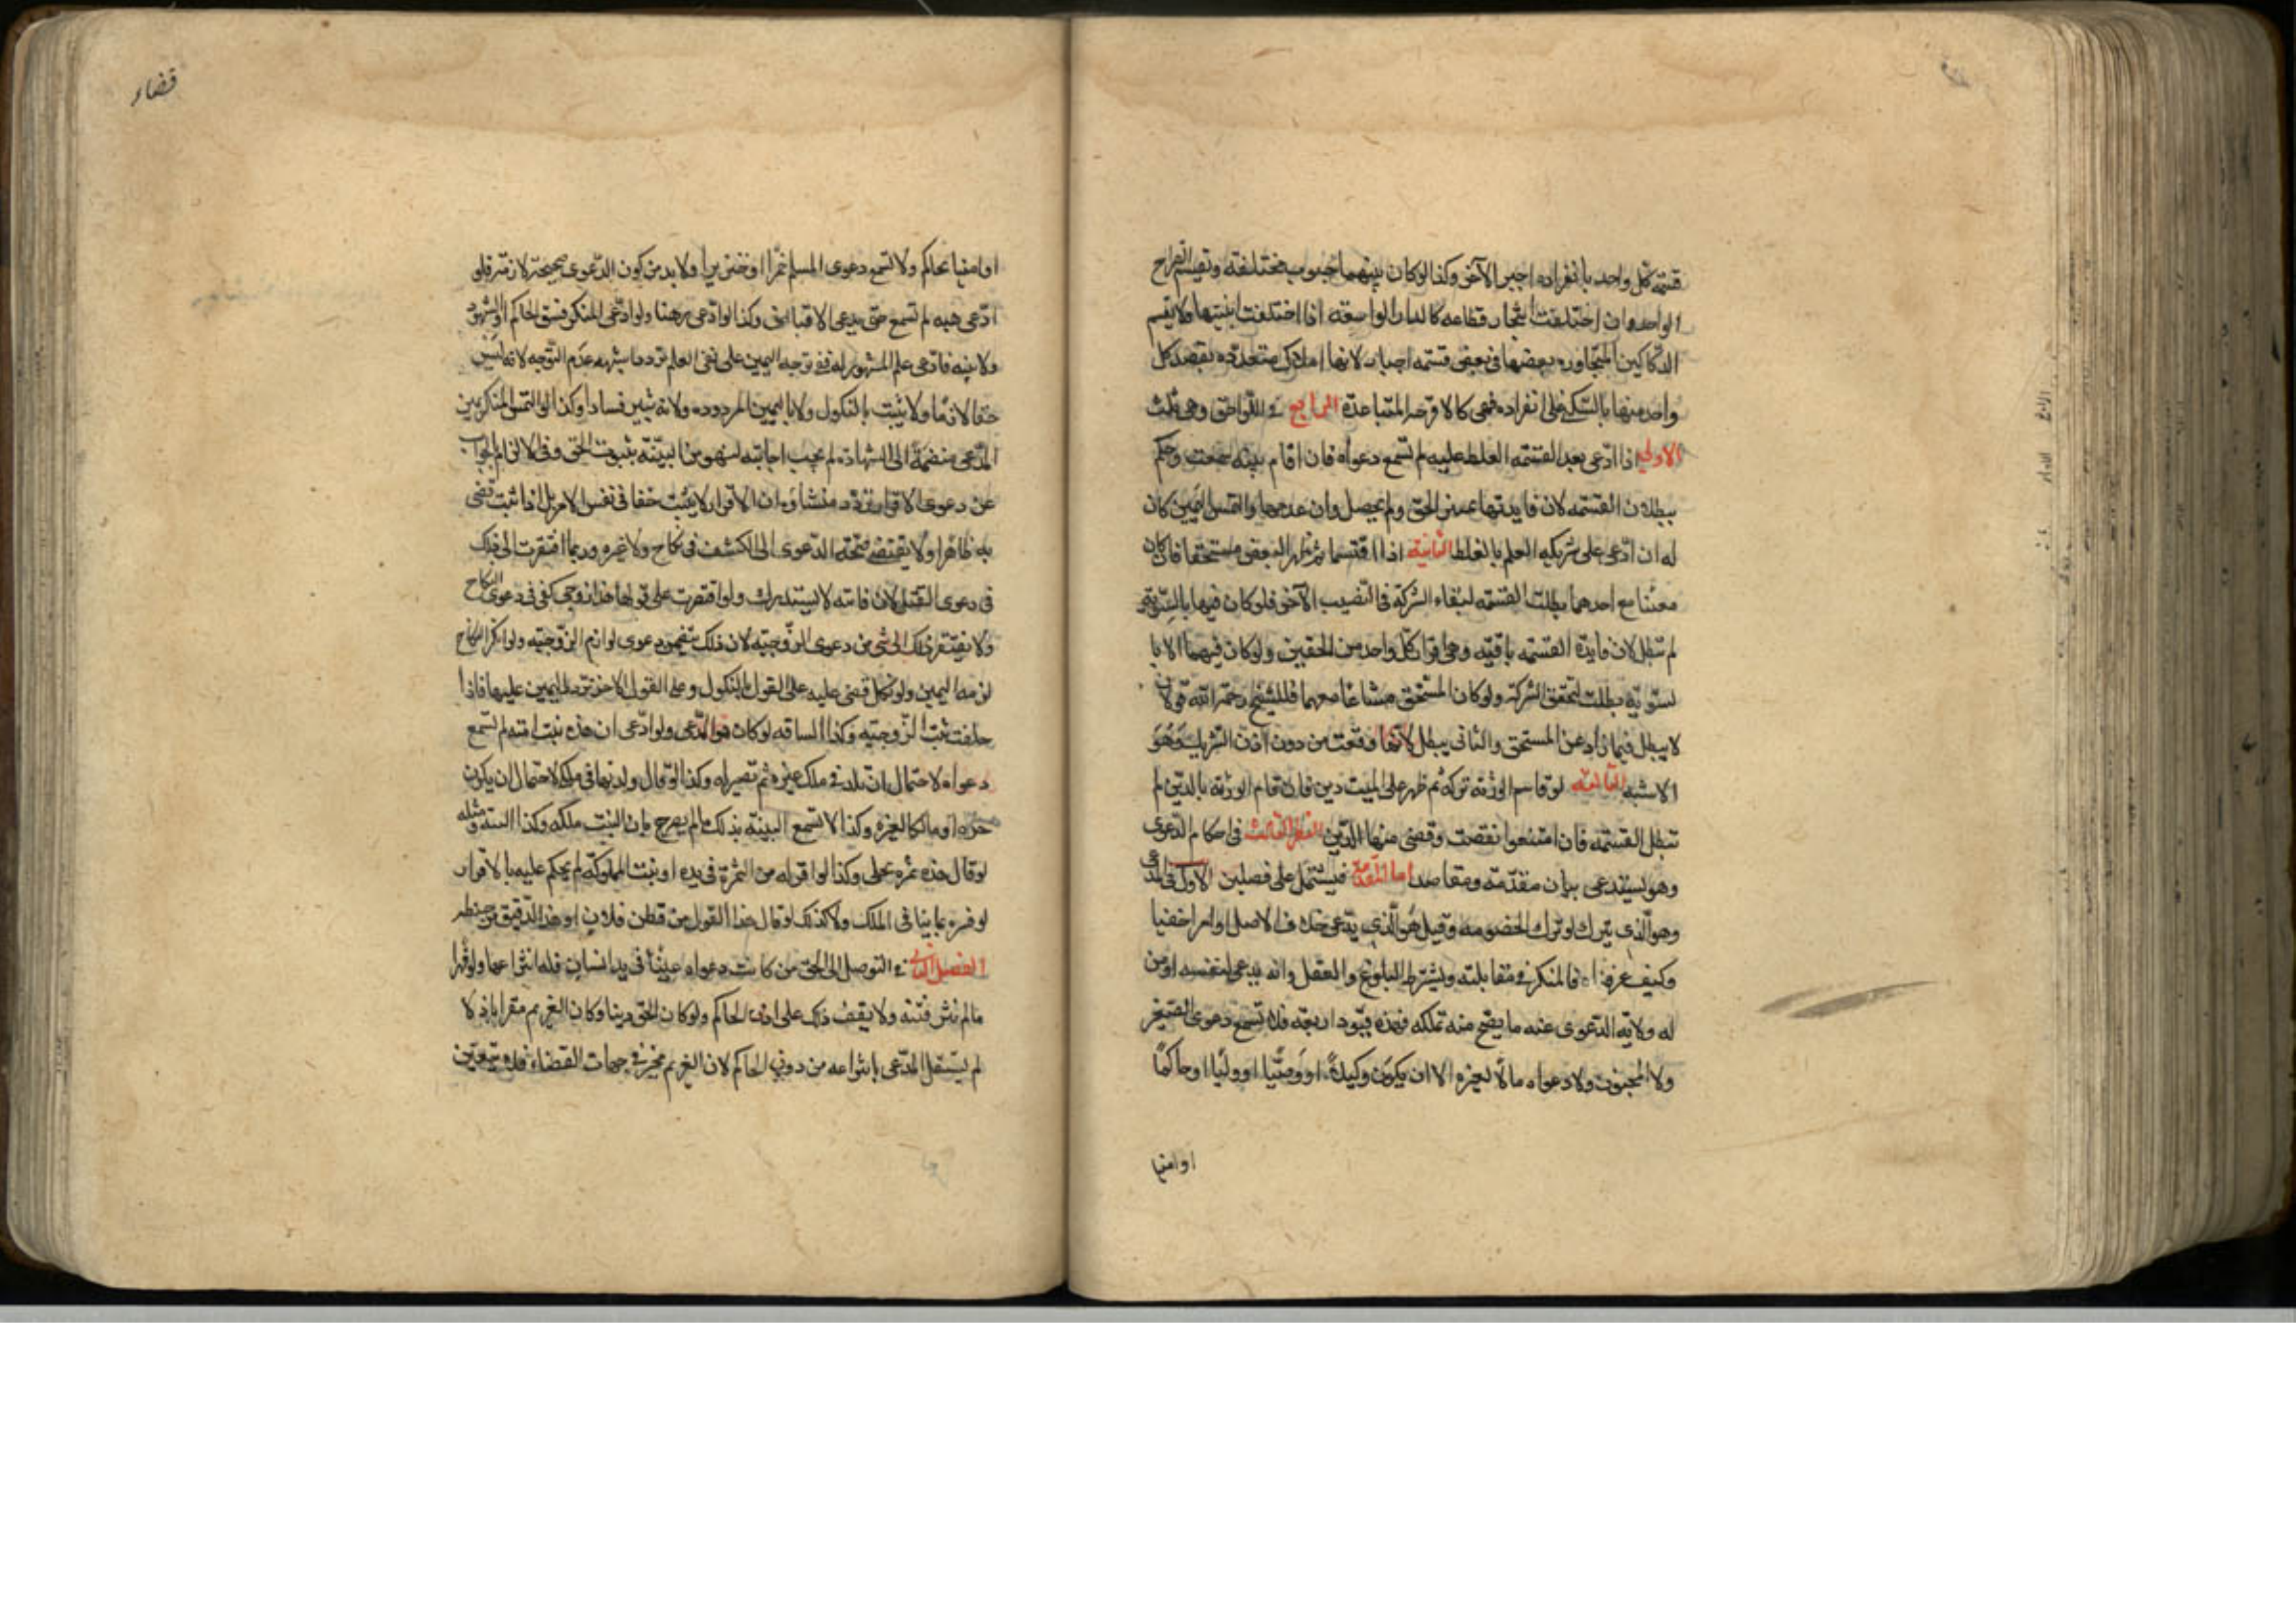 قسمة كل واحد بانفراده اجبر الآخر وكذا لو كان بينهما حبوب مختلفة وتقسم القراح
الواحد وان اختلفت اشجار قطاعه كالدار الواسعة اذا اختلفت ابنيتها ولا يقسم
الدكاكين المتجاوره بعضها في بعض قسمة اجبار لانها املاك متعددة يقصد كل
واحد منها بالسكنى على انفراده فهي كالاقرحة المتباعدة الرابع في اللواحق وهي ثلث
الاولى اذا ادعى بعد القسمة الغلط عليه لم تسمع دعواه فان اقام بينة سمعت وحكم
ببطلان القسمة لان فايدتها تميز الحق ولم يحصل وان عدمها والتمس اليمين كان
له ان ادعى على شريكه العلم بالغلط الثانية اذا اقتسما ثم ظهر البعض مستحقا فان كان
معينا مع احدهما بطلت القسمة لبقاء الشركة في النصيب الآخر فلو كان فيهما بالسوية
لم تبطل لان فايدة القسمة باقية وهي افراز كل واحد من الحقين ولو كان فيهما الا با
لسوية بطلت لتحقق الشركة ولو كان المستحق مشاعا معهما فللشيخ رحمه الله قولان
لا يبطل فيما زاد عن المستحق والثاني يبطل لانها وقعت من دون اذن الشريك وهو
الاشبه الثالثة لو قاسم الورثة تركه ثم ظهر على الميت دين فان قام الورثة بالدين لم
تبطل القسمة فان امتنعوا نقضت وقضى منها الدين النظر الثالث في احكام الدعوى
وهو يستدعي بيان مقدمة ومقاصد اما المقدمة فيشتمل على فصلين الاول في المدعى
وهو الذي يترك لو ترك الخصومة وقيل هو الذي يدعي خلاف الاصل او امرا خفيا
وكيف عرفناه فالمنكر في مقابلته ويشترط البلوغ والعقل وانه يدعي لنفسه او من
له ولاية الدعوى عنه ما يصح منه تملكه فهذه قيود اربعة فلا تسمع دعوى الصغير
ولا المجنون ولا دعواه مالا لغيره الا ان يكون وكيلا او وصيا او وليا او حاكما
او امينا
قضاء
او امينا لحاكم ولا تسمع دعوى المسلم خمرا او خنزيرا ولا بد من كون الدعوى صحيحة لازمة فلو
ادعى هبه لم تسمع حتى يدعي الاقباض وكذا لو ادعى رهنا ولو ادعى المنكر فسق الحاكم او الشهود
ولا بينه فادعى علم المشهود له ففي توجه اليمين على نفي العلم تردد اشبهه عدم التوجه لانه ليس
حقا لازما ولا يثبت بالنكول ولا باليمين المردوده ولانه يثير فسادا وكذا لو التمس المنكر يمين
المدعى منضمة الى الشهادة لم يجب اجابته لنهوض البينة بثبوت الحق وفي الالزام بالجواب
عن دعوى الاقرار تردد منشاؤه ان الاقرار لا يثبت حقا في نفس الامر بل اذا ثبت قضى
به ظاهرا ولا يفتقر صحة الدعوى الى الكشف في نكاح ولا غيره وربما افتقرت الى ذلك
في دعوى القتل لان فائته لا يستدرك ولو اقتصرت على قولها هذا زوجي كفى في دعوى النكاح
ولا يفتقر ذلك الى شئ من دعوى الزوجية لان ذلك يتضمن دعوى لوازم الزوجية ولو انكر النكاح
لزمه اليمين ولو نكل قضى عليه على القول بالنكول وعلى القول الاخر ترد اليمين عليها فاذا
حلفت ثبت الزوجية وكذا السياقه لو كان هو المدعى ولو ادعى ان هذه بنت امته لم تسمع
دعواه لاحتمال ان تلد في ملك غيره ثم تصير له وكذا لو قال ولدتها في ملكي لاحتمال ان يكون
حره او ملكا لغيره وكذا لا تسمع البينة بذلك ما لم يصرح بان البنت ملكه وكذا البينة ومثله
لو قال هذه ثمره نخلي وكذا لو اقر له من الثمرة في يده او بنت المملوكة لم يحكم عليه بالاقرار
لو فسره بما ينافي الملك ولا كذلك لو قال هذا الغزل من قطن فلان او هذا الدقيق من حنطته
الفصل الثاني في التوصل الى الحق من كانت دعواه عينا في يد انسان فله انتزاعها ولو قهرا
ما لم تثر فتنه ولا يقف ذلك على اذن الحاكم ولو كان الحق دينا وكان الغريم مقرا باذلا
لم يستقل المدعى بانتزاعه من دون الحاكم لان الغريم مخير في جهات القضاء فلا يتعين